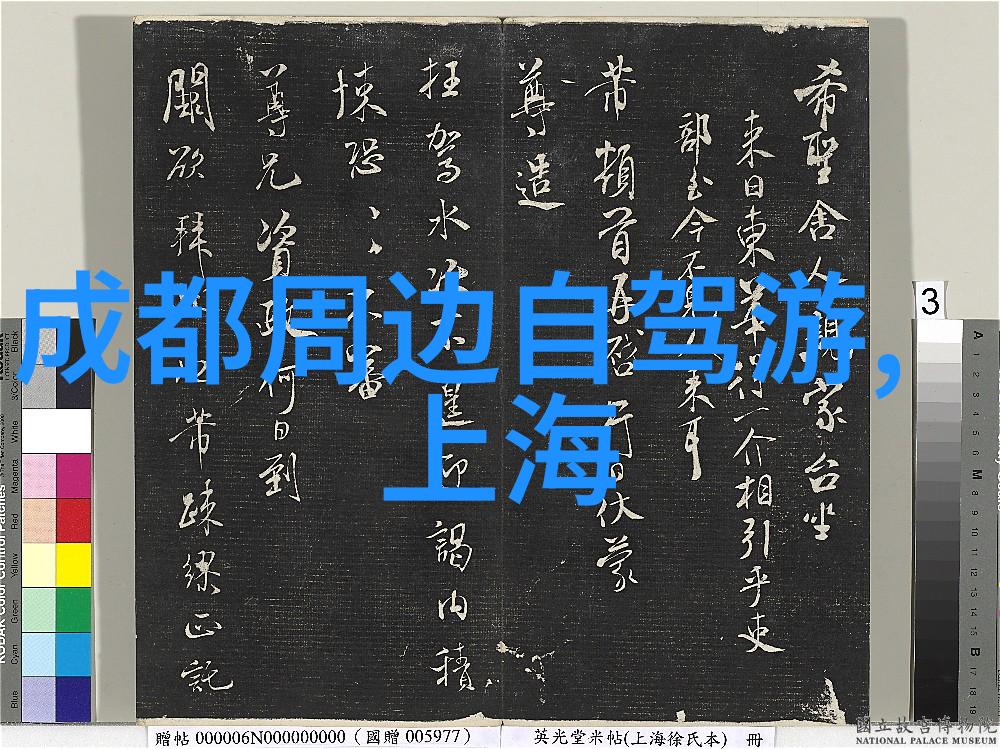 成都周边自驾游,
上海
希聖舍人親家台坐
来日東
介相引乎吏
部
今不
来耳
带頓首再啓
伏蒙
尊造
枉駕水
謁内積
悚恐
審
尊兄資政何日到
闕欲拜
带疎繆正託
3
贈帖 000006N000000000 (國贈 005977)
英光堂米帖(上海徐氏本) 冊
國立故宮博物院
NATIONAL PALACE MUSEUM
Black
3/Color
White
Magenta
Red
Yellow
Green
Cyan
Blue
KODAK Color Control Patches
A
1
2
3
4
5
6
M
8
9
10
11
12
13
14
15
B
17
18
19